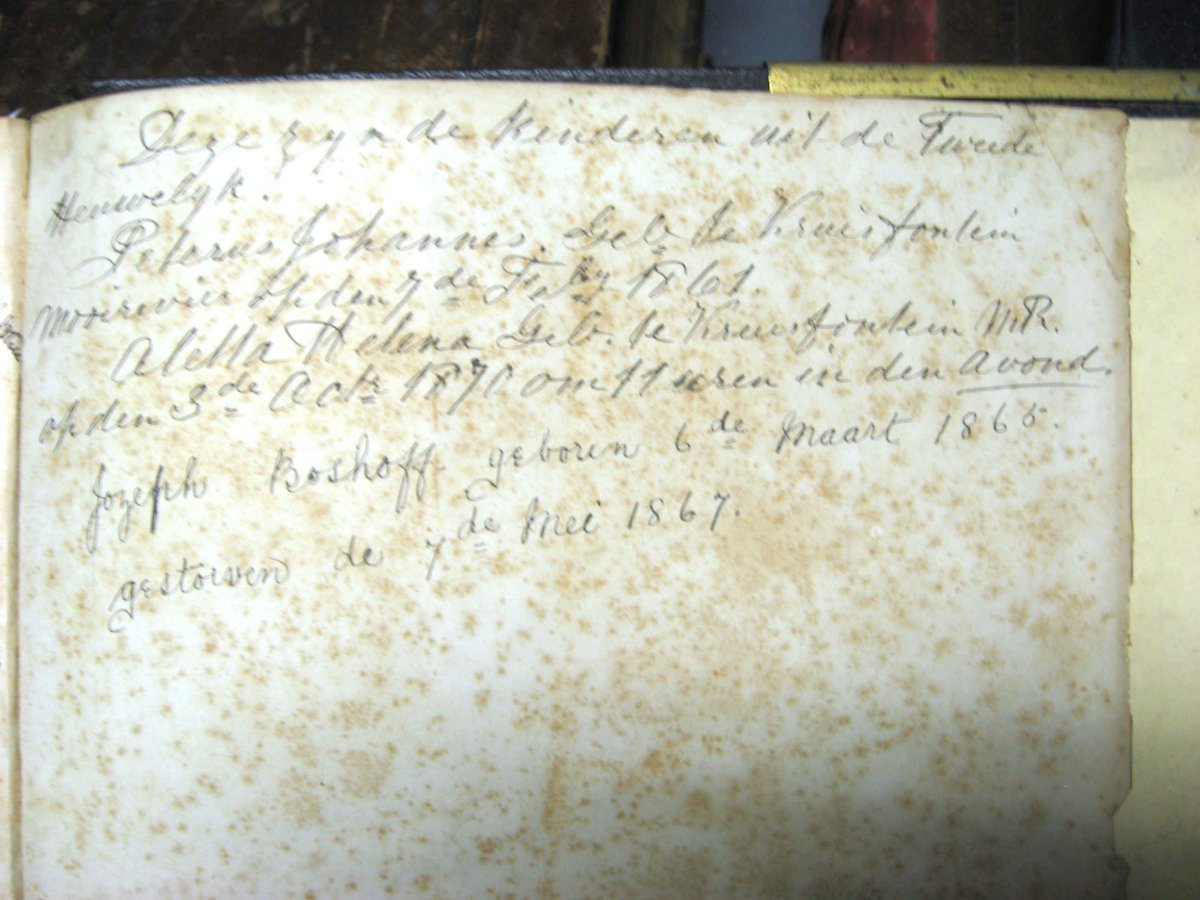 Deze zyn de Kinderen uit de Tweede
Heuwelyk.
Peterus Johannes. Geb. te Kruisfontein
Mooirevier op den 7de Febry 1861.
Aletta Helena Geb. te Kruisfontein M.R.
op den 3de Octr 1870 om 11 uren in den avond.
Jozeph Boshoff. geboren 6de Maart 1865.
gestorven de 7de Mei 1867.